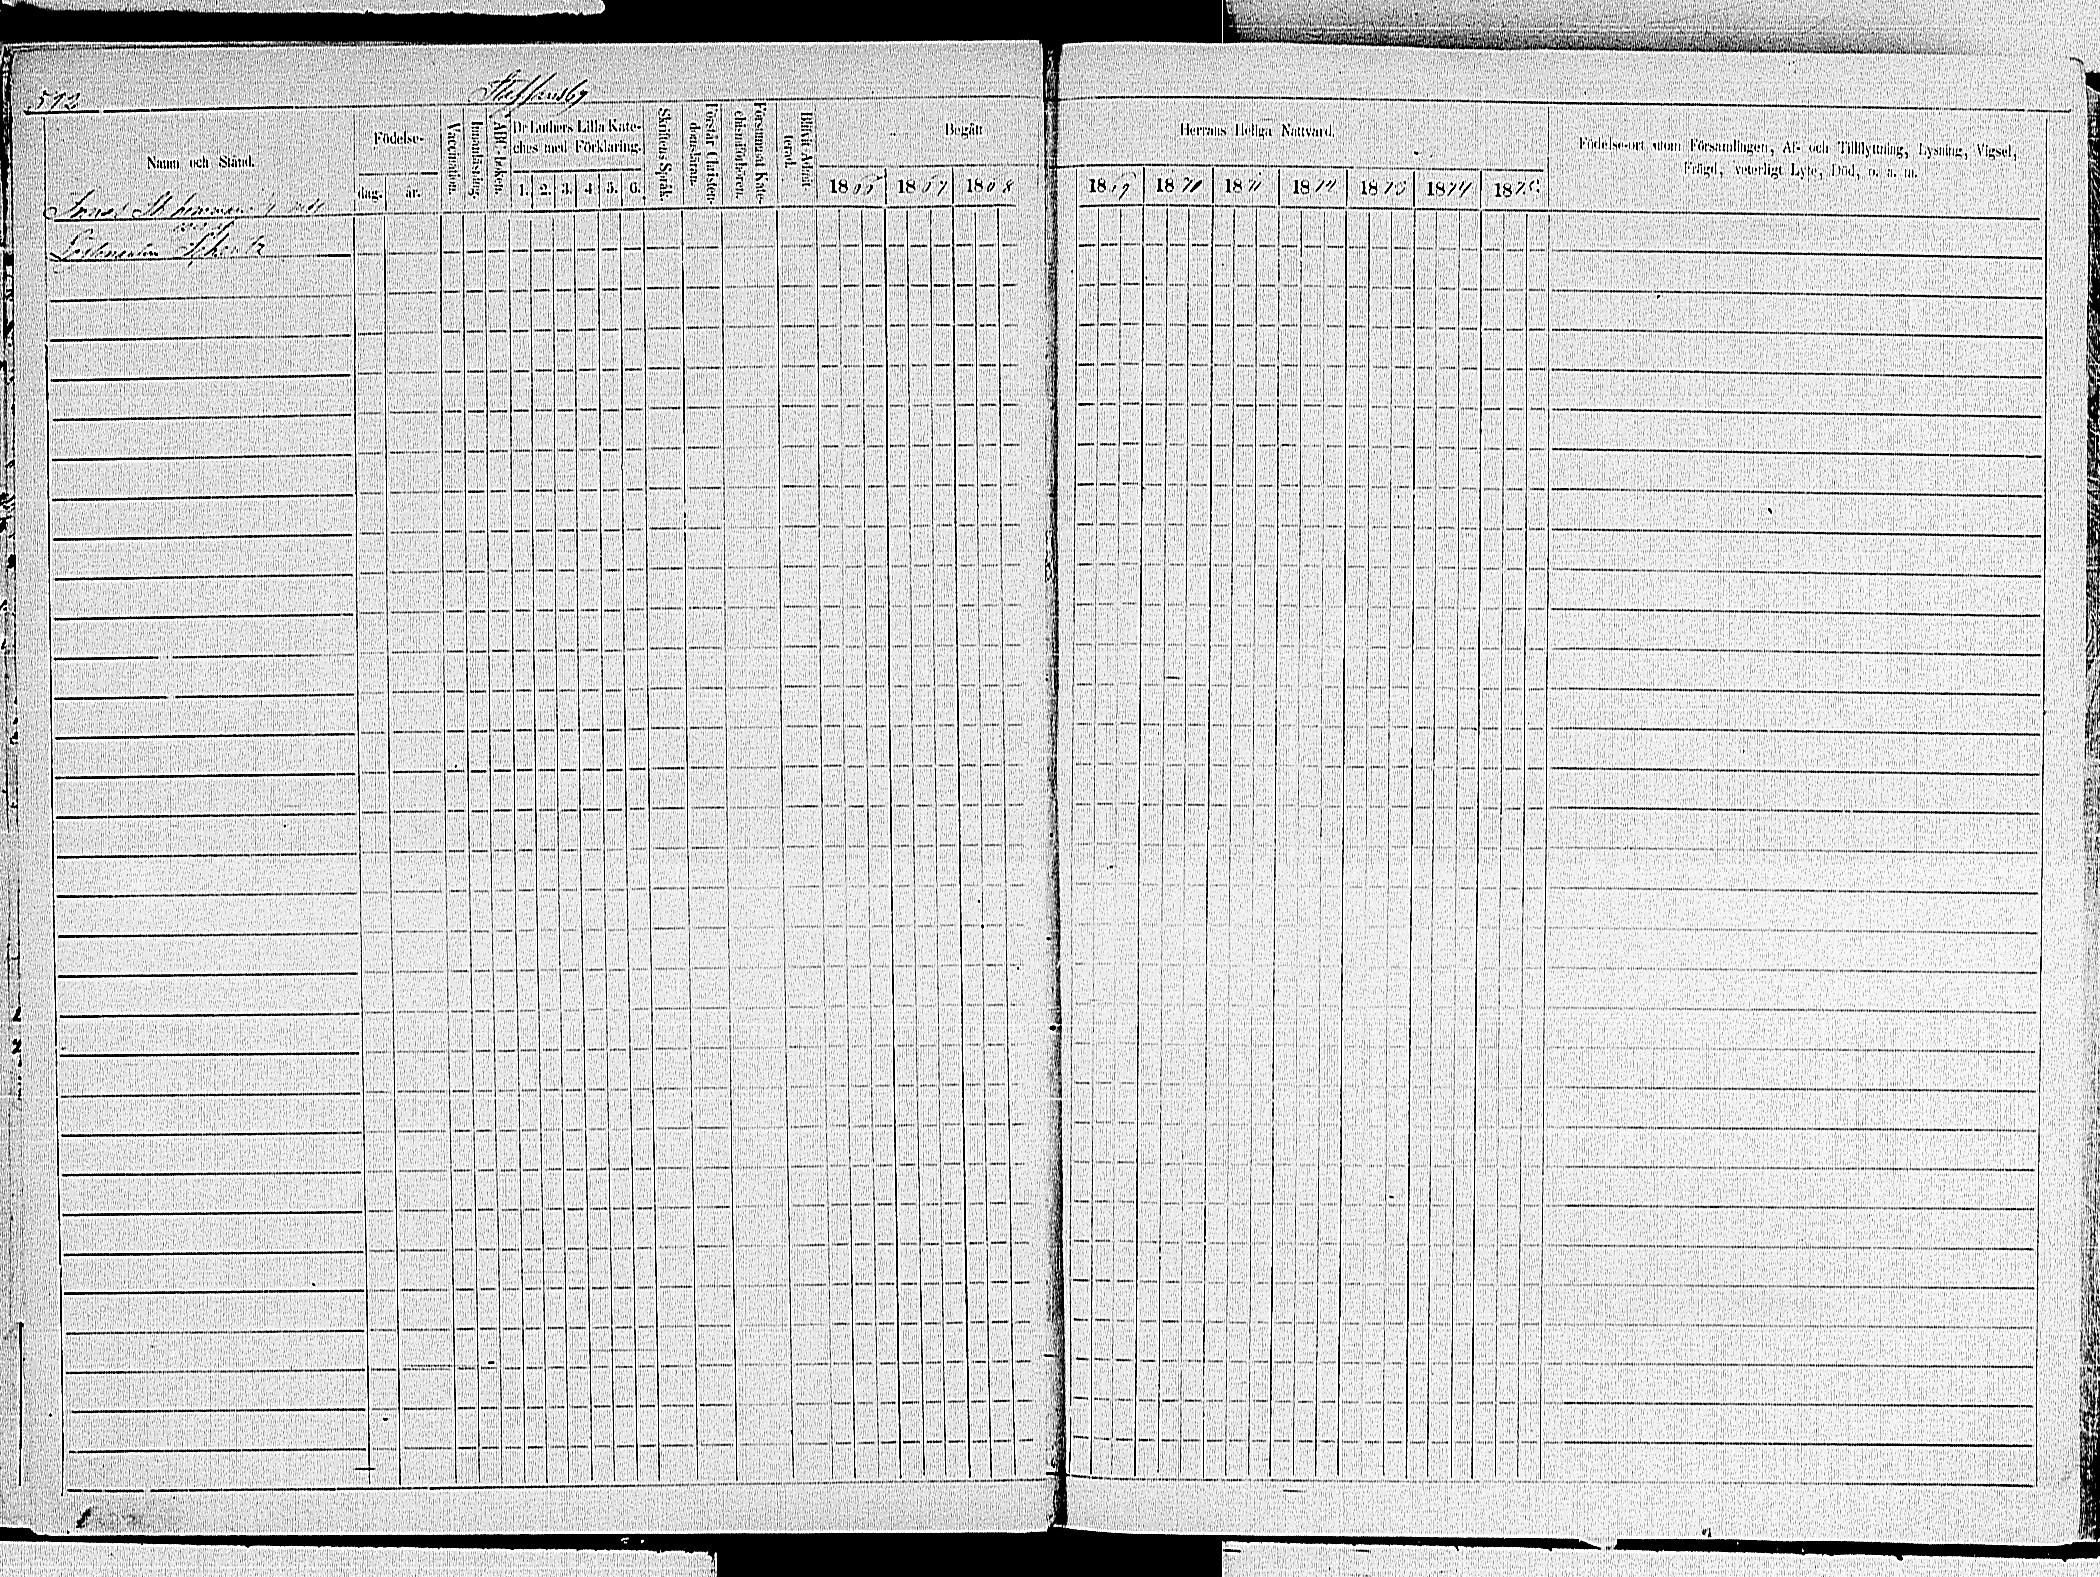 512
Steffensby
Namn och Stånd.
Födelse-
dag.
år.
Vaccination.
Innanläsning.
ABC-boken.
Dr Luthers Lilla Kate-
ches med Förklaring.
1. 2. 3. 4 5. 6.
Skriftens Språk.
Förstår Christen-
domsläran.
Försummat Kate-
chismiförhören.
Blifvit Admit-
terad.
Begått
1867 1868
Herrans Heliga Nattvard.
1869 1870 1871 1872 1873 1874 1875
Födelse-ort utom Församlingen, Af- och Tillflyttning, Lysning, Vigsel,
Frägd, veterligt Lyte, Död, o. s. m.